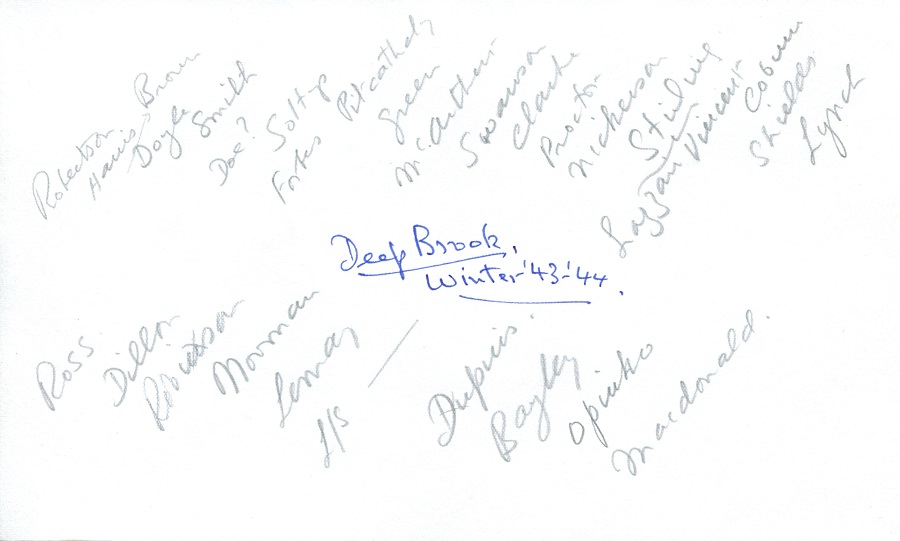 Robertson
Harris
Brown
Doyle
Smith
Doe?
Soltys
Forbes
Pitcathely
Green
McArthur
Swanson
Clarke
Proctor
Nickerson
Stirling
Vincent
Coburn
Shields
Lynch
Deep Brook,
Winter '43-'44.
Ross
Dillon
Robertson
Moorman
Lemay
L/S
Dupuis.
Bayley
Opinko
Macdonald.